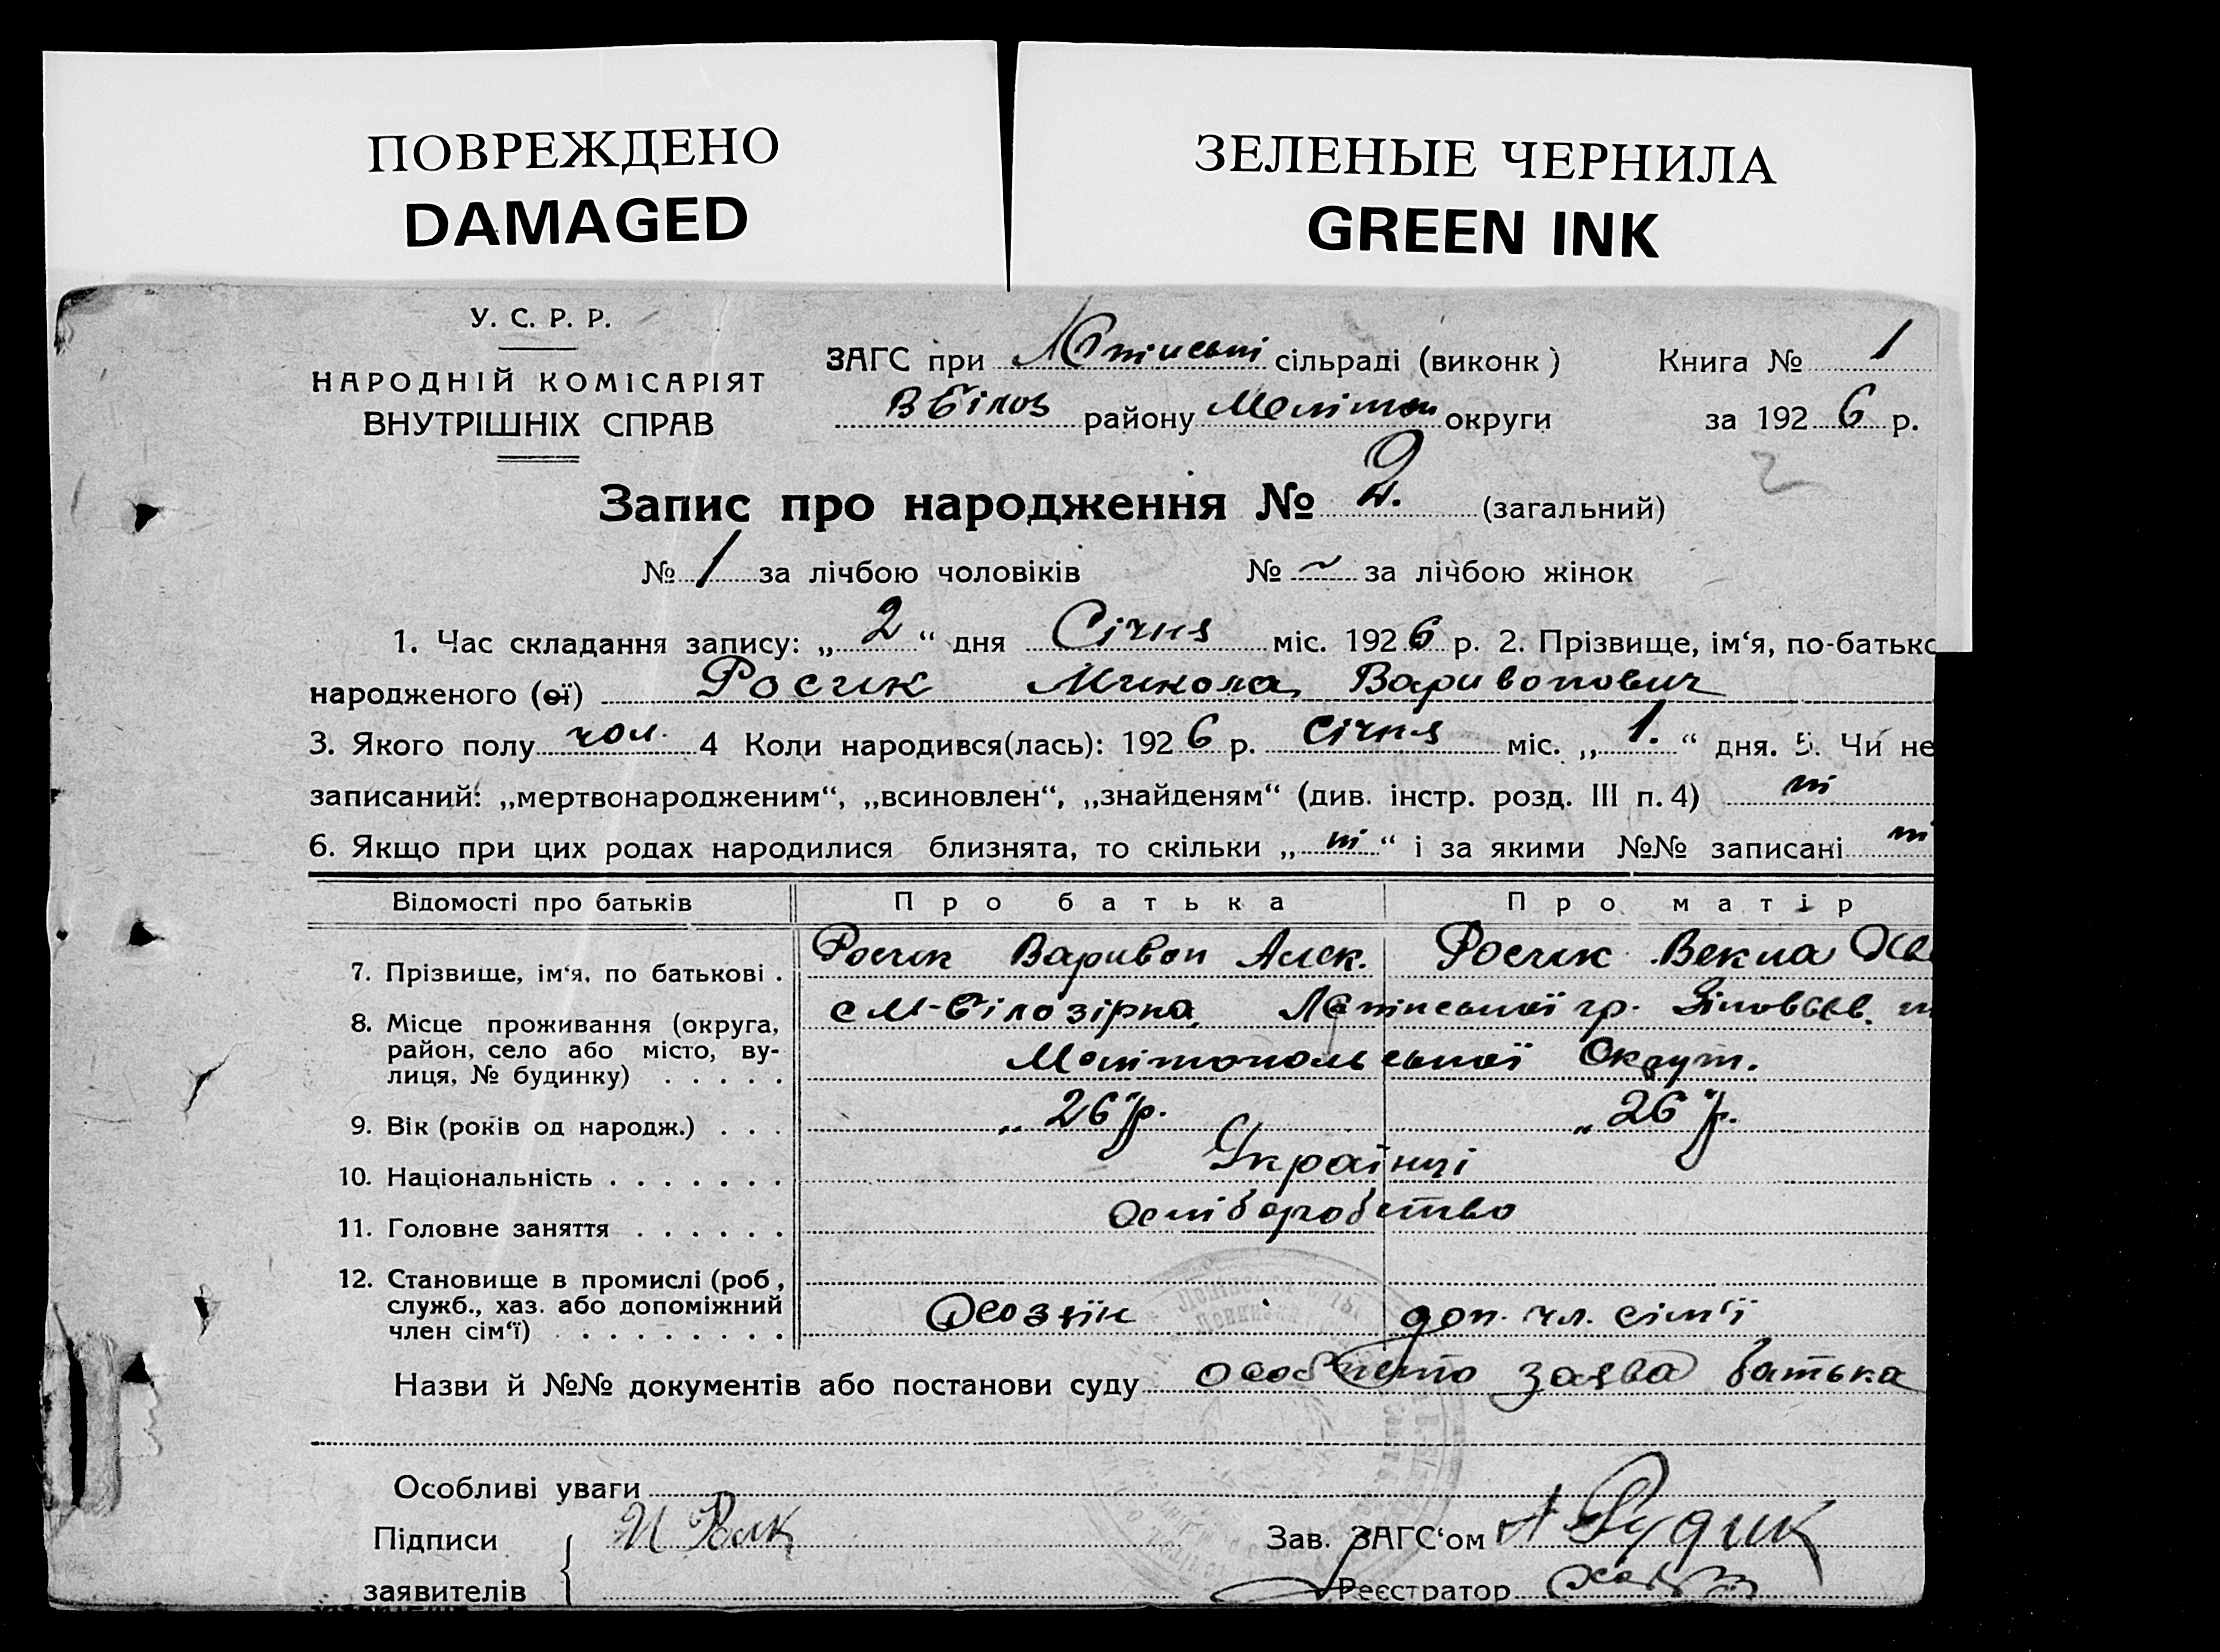 ПОВРЕЖДЕНО
DAMAGED
ЗЕЛЕНЫЕ ЧЕРНИЛА
GREEN INK
У. С. Р. Р.
НАРОДНІЙ КОМІСАРІЯТ
ВНУТРІШНІХ СПРАВ
ЗАГС при сільраді (виконк) Книга № 1
В Білоз району Меліто округи за 1926 р.
2
Запис про народження № 2. (загальний)
№ 1 за лічбою чоловіків № ~ за лічбою жінок
1. Час складання запису: „2“ дня Січня міс. 1926 р. 2. Прізвище, ім‘я, по-батько
народженого (ої) Росик Микола Варивонович
3. Якого полу чол. 4 Коли народився(лась): 1926 р. Січня міс. „1.“ дня. 5. Чи не
записаний: „мертвонародженим“, „всиновлен“, „знайденям“ (див. інстр. розд. III п. 4) ні
6. Якщо при цих родах народилися близнята, то скільки „ні“ і за якими №№ записані ні
Відомості про батьків Про батька Про матір
7. Прізвище, ім‘я, по батькові . Росик Варивон Алек. Росик Векла
8. Місце проживання (округа, район, село або місто, вулиця, № будинку) . . . . . с М-Білозірка,
Мелітопольської Округи.
9. Вік (років од народж.) . . . „26 р. „26 р.
10. Національність . . . . . . . Українці
11. Головне заняття . . . . . . хліборобство
12. Становище в промислі (роб., служб., хаз. або допоміжний член сім‘ї) . . . . . . . . . Хозяїн доп. чл. сім‘ї
Назви й №№ документів або постанови суду особисто заява батька
Особливі уваги
Підписи
заявителів
Зав. ЗАГС‘ом А Рудик
Реєстратор